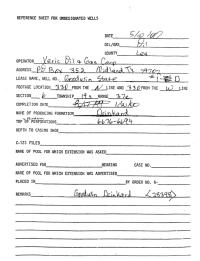 REFERENCE SHEET FOR UNDESIGNATED WELLS
DATE 5/6/
OIL/GAS Oil
COUNTY Lea
OPERATOR Xeric Oil & Gas Corp
ADDRESS PO Box 352 Midland Tx 79702
LEASE NAME, WELL NO. Goodwin State
FOOTAGE LOCATION: 330 FROM THE N LINE AND 330 FROM THE W LINE
SECTION 6 TOWNSHIP 19s RANGE 37e
COMPLETION DATE
NAME OF PRODUCING FORMATION Drinkard
TOP OF PERFORATIONS 6676-6694
DEPTH TO CASING SHOE
C-123 FILED
NAME OF POOL FOR WHICH EXTENSION WAS ASKED
ADVERTISED FOR HEARING CASE NO.
NAME OF POOL FOR WHICH EXTENSION WAS ADVERTISED
PLACED IN BY ORDER NO. R-
REMARKS Goodwin Drinkard